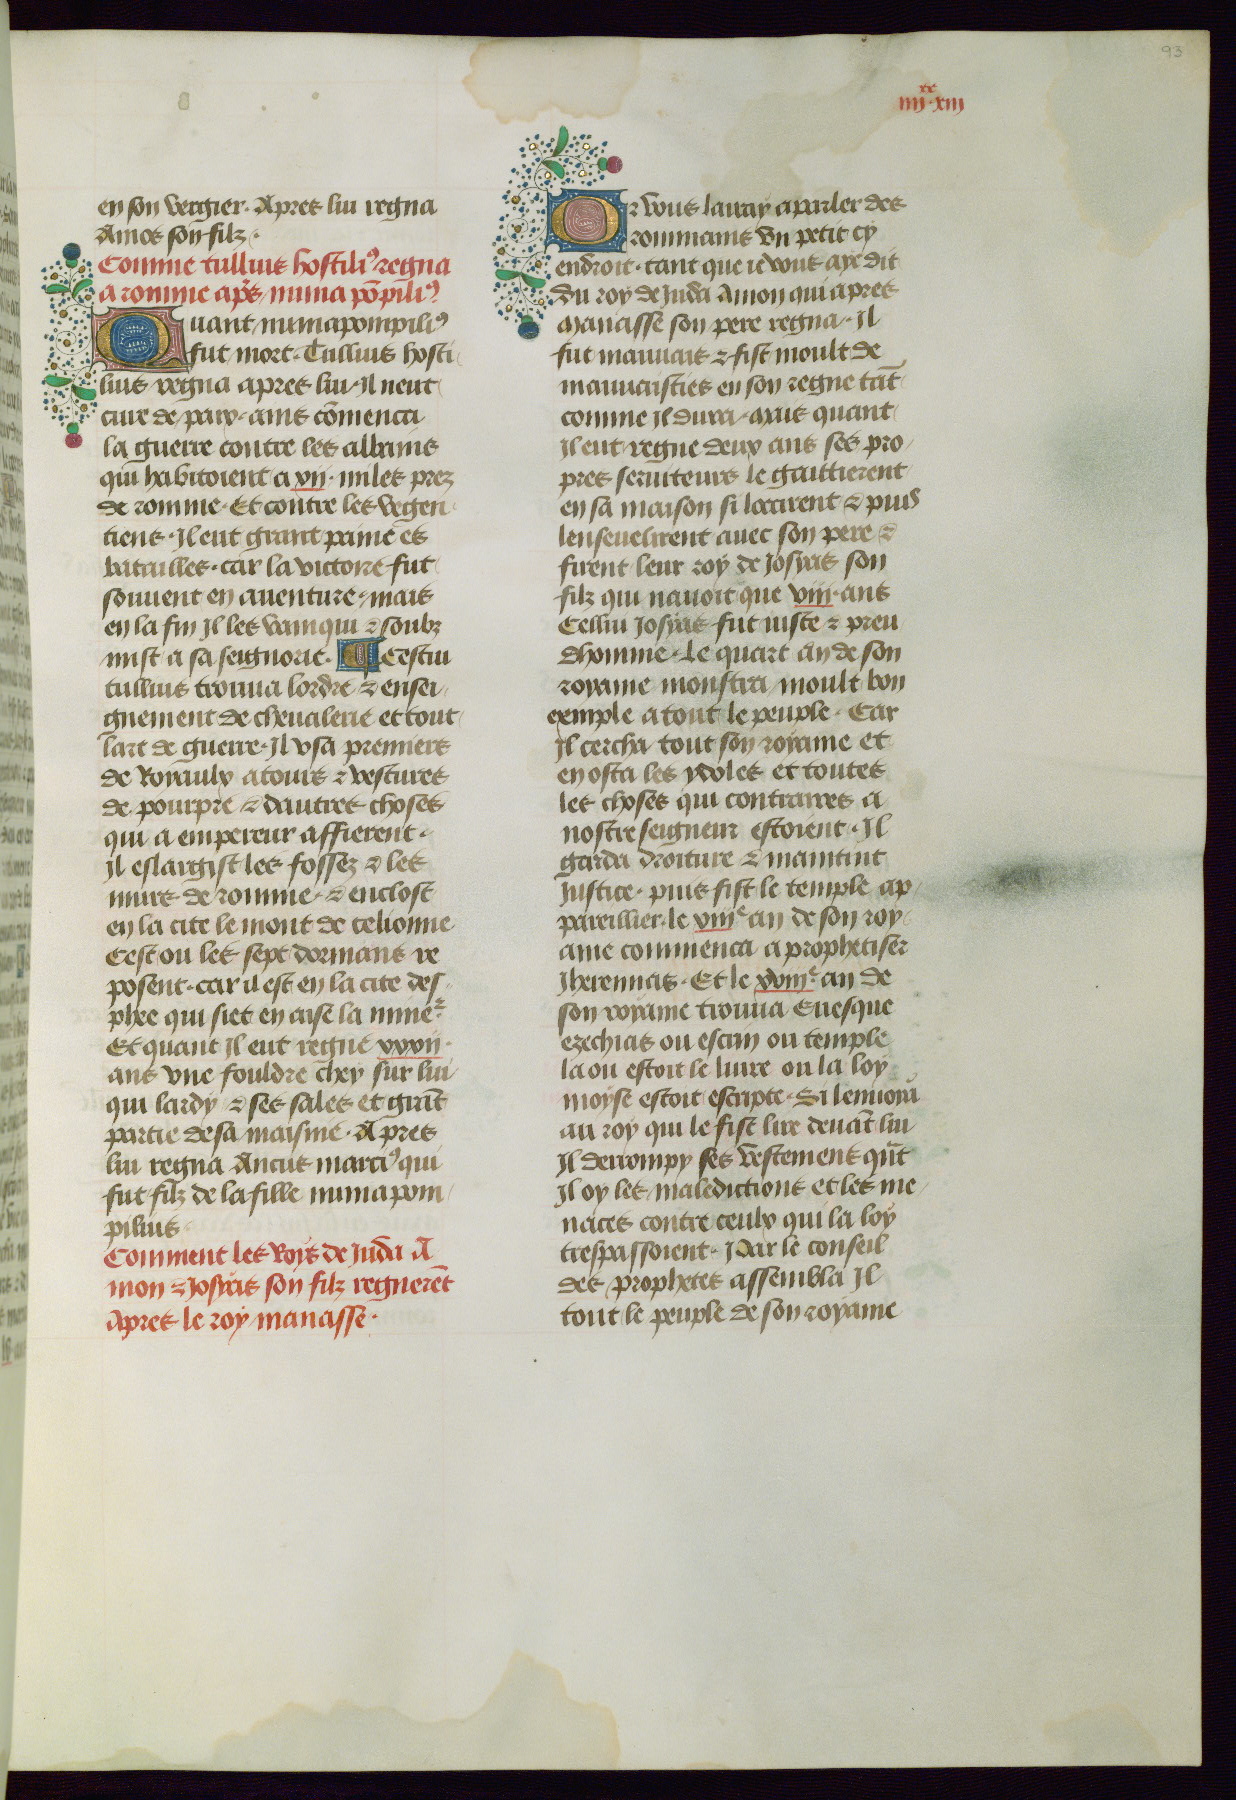 93
iiii·xiii
xx
en son vergier. Apres lui regna
Amos son filz.
Comme tullius hostili9 regna
a romme aps numa põpili9
Quant numa pompili9
fut mort. Tullius hosti
lius regna apres lui. Il neut
cure de paix. ains cõmenca
la guerre contre les albains
qui habitoient a xii. miles prez
de romme. Et contre les vegen
tiens. Il eut grant paine es
batailles. car la victoire fut
souuent en auenture. mais
en la fin Il les vainqui & soubz
mist a sa seignorie. Cestui
tullius trouua lordre & ensei
gnement de cheualerie et tout
lart de guerre. Il vsa premiers
de Royaulx atours & vestures
de pourpre & dautres choses
qui a empereur affierent.
Il eslargist les fossez & les
murs de romme. & enclost
en la cite le mont de celionne
Cest ou les sept dormans re
posent. car il est en la cite des
phee qui siet en aise la mine2
Et quant Il eut regne xxxii.
ans vne fouldre chey sur lui
qui lardy & ses sales et grãt
partie de sa maisnie. Apres
lui regna Ancus marci9 qui
fut filz de la fille numa pom
pilius.
Comment les Roys de Juda A
mon & Josyas son filz regnerẽt
Apres le roy manasse.
Or vous lairay a parler des
rommains vn petit cy
endroit. tant que ie vous aye dit
du roy de Juda Amon qui apres
Manasse son pere regna. Il
fut mauuais & fist moult de
mauuaisties en son regne tãt
comme Il dura. Mais quant
Il eut regne deux ans ses pro
pres seruiteurs le gaittierent
en sa maison si loccirent & puis
lenseuelirent auec son pere &
firent leur roy de Josyas son
filz qui nauoit que viii. ans
Cellui Josyas fut iuste & preu
dhomme. Le quart an de son
royame monstra moult bon
exemple a tout le peuple. Car
Il cercha tout son royame et
en osta les ydoles et toutes
les choses qui contraires a
nostre seigneur estoient. Il
garda droiture & maintint
Justice. puis fist le temple ap
pareillier. le viiie an de son roy
ame commenca a prophetiser
Jheremias. Et le xviiie an de
son royame trouua Euesque
ezechias ou escrin ou temple
la ou estoit le liure ou la loy
moyse estoit escripte. Si lenuoia
au roy qui le fist lire deuãt lui
Il derrompy ses vestemens qñt
Il oy les maledictions et les me
naces contre ceulx qui la loy
trespassoient. Par le conseil
des prophetes assembla Il
tout le peuple de son royame